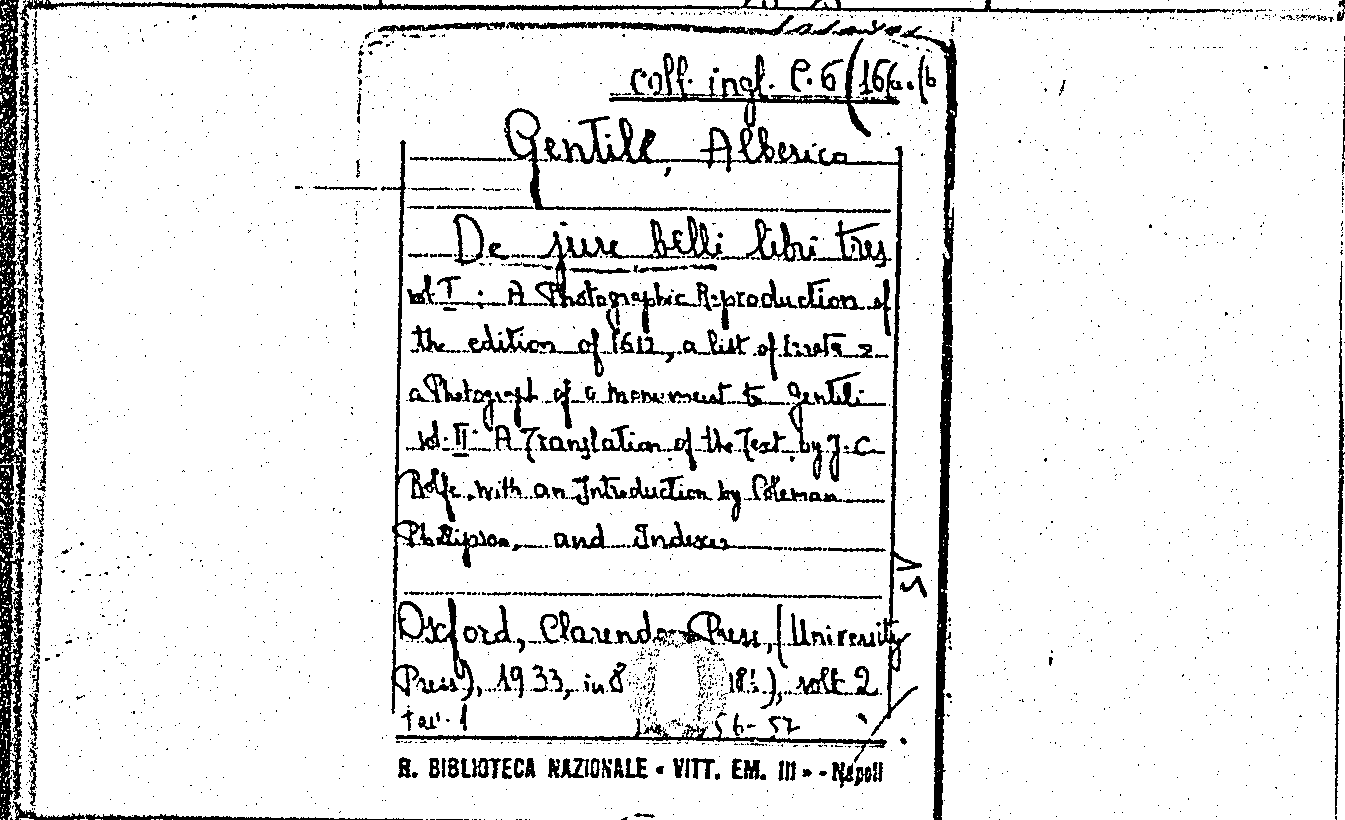 Coll. ingl. C. 6 (16 (a. (b
Gentili, Alberico
De jure belli libri tres
vol I : A Photographic Reproduction of
the edition of 1612, a list of Errata &
a Photograph of a monument to Gentili
vol. II. A Translation of the Text, by J. C.
Rolfe, with an Introduction by Coleman
Phillipson, and Indexes
Oxford, Clarendon Press, (University
Press), 1933, in 8 18:), volt 2
tav. 1 56-57
R. BIBLIOTECA NAZIONALE « VITT. EM. III » - Napoli